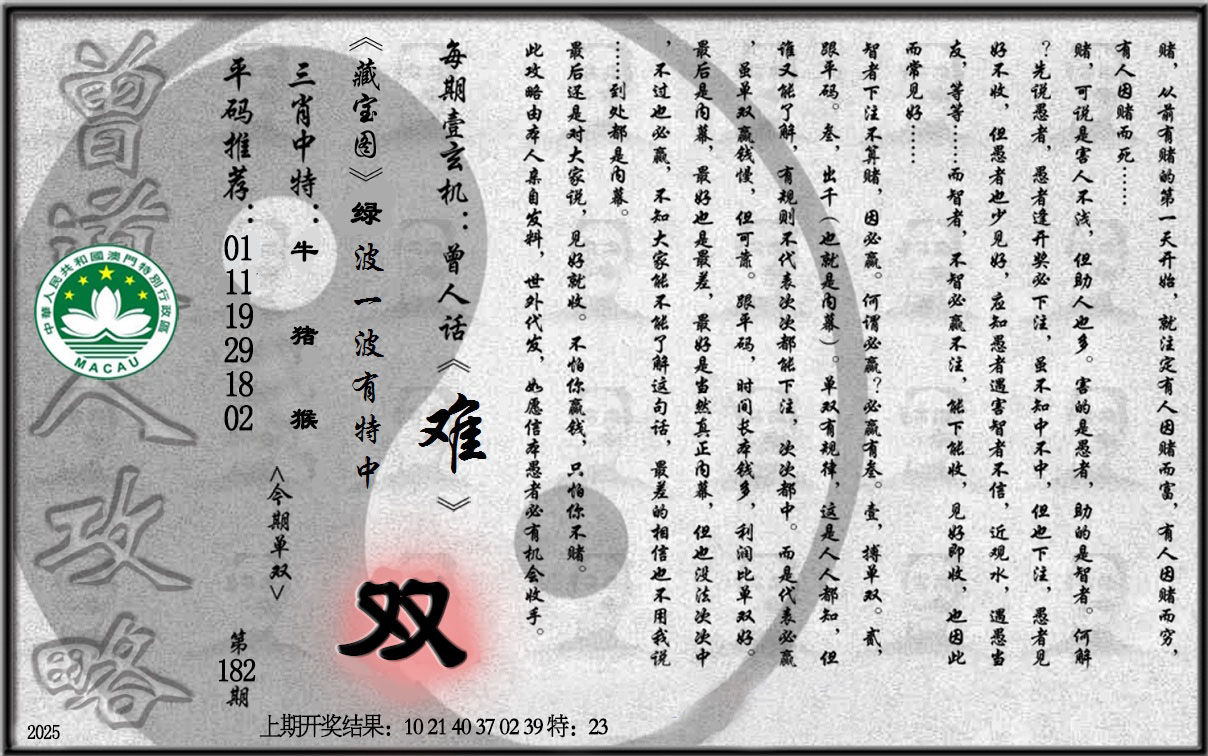 赌，从前有赌的第一天开始，就注定有人因赌而富，有人因赌而穷，
有人因赌而死……
赌，可说是害人不浅，但助人也多。害的是愚者，助的是智者。何解
？先说愚者，愚者逢开奖必下注，虽不知中不中，但也下注，愚者见
好不收，但愚者也少见好，应知愚者遇害智者不信，近观水，遇愚当
友，等等……而智者，不智必赢不注，能下能收，见好即收，也因此
而常见好……
智者下注不算赌，因必赢。何谓必赢？必赢有叁。壹，搏单双。贰，
跟平码。叁，出千（也就是内幕）。单双有规律，这是人人都知，但
谁又能了解，有规则不代表次次都能下注，次次都中。而是代表必赢
，虽单双赢钱慢，但可靠。跟平码，时间长本钱多，利润比单双好。
最后是内幕，最好也是最差，最好是当然真正内幕，但也没法次次中
，不过也必赢，不知大家能不能了解这句话，最差的相信也不用我说
……到处都是内幕。
最后还是对大家说，见好就收。不怕你赢钱，只怕你不赌。
此攻略由本人亲自发料，世外代发，如愿信本愚者必有机会收手。
每期壹玄机：曾人话《难》
《藏宝图》绿波一波有特中
双
三肖中特：牛 猪 猴
<今期单双>
平码推荐：01 11 19 29 18 02
第182期
曾道人攻略
中華人民共和國澳門特別行政區
MACAU
上期开奖结果：10 21 40 37 02 39 特：23
2025